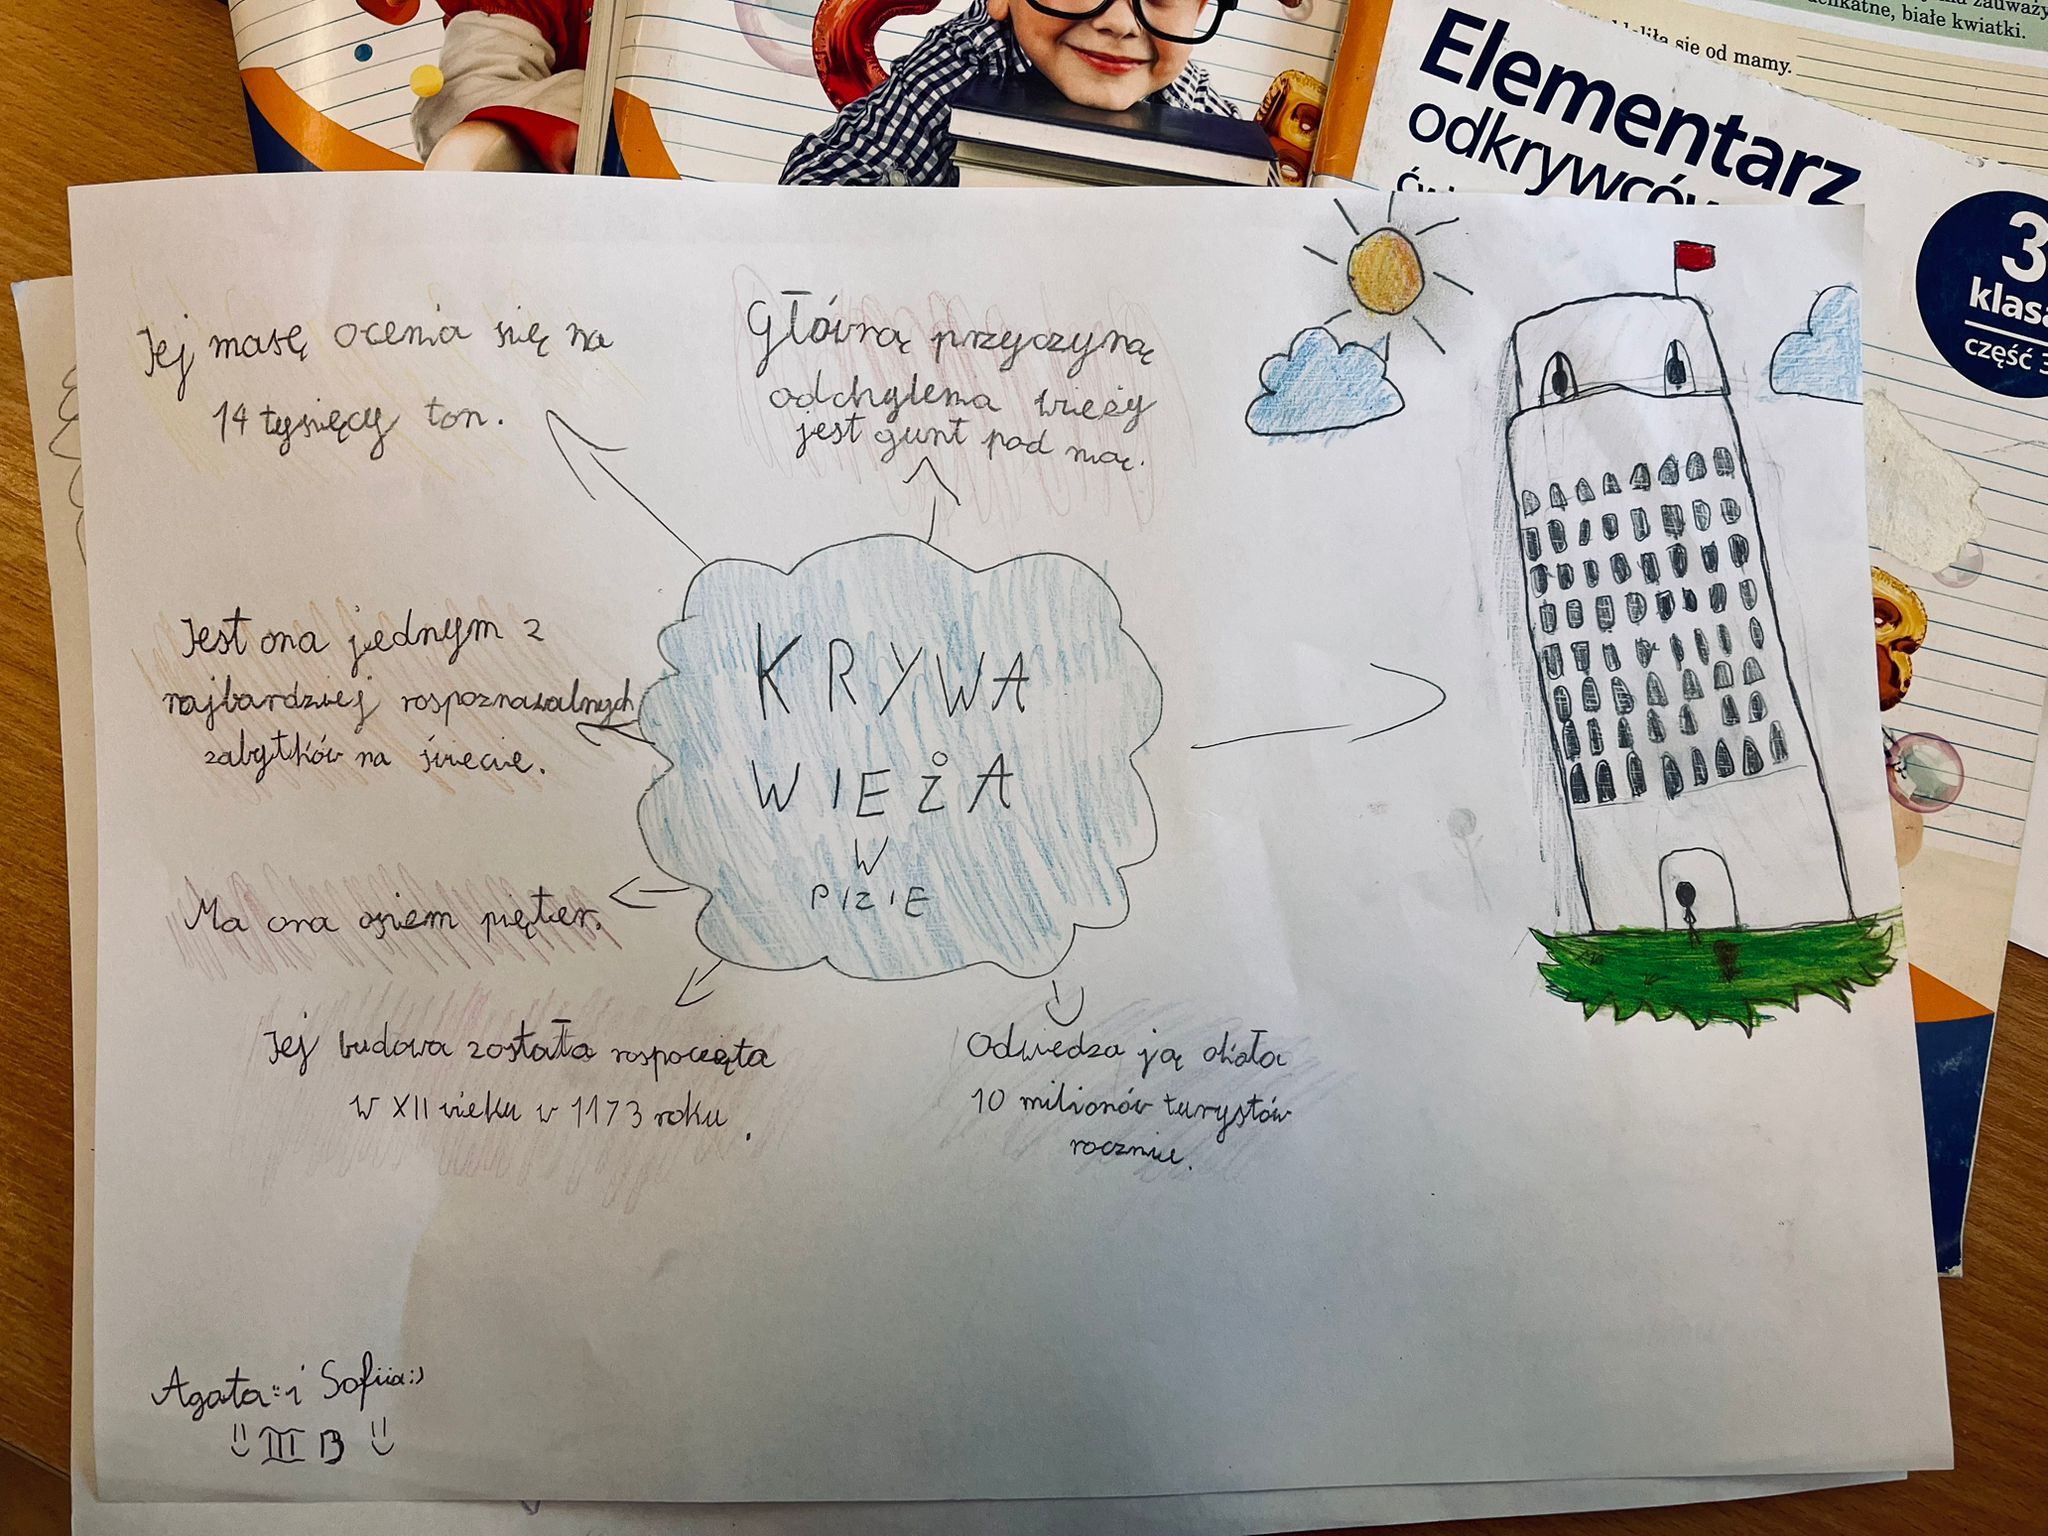 zauważy
delikatne, białe kwiatki.
się od mamy.
Elementarz
odkrywców
3
klasa
część 3
Jej masę ocenia się na
14 tysięcy ton.
Główną przyczyną
odchylenia wieży
jest gunt pod nią.
Jest ona jednym z
najbardziej rospoznawalnych
zabytków na świecie.
KRYWA
WIEŻA
W
PIZIE
Ma ona osiem pięter.
Jej budowa została rospoczęta
w XII wieku w 1173 roku.
Odwiedza ją około
10 milionów turystów
rocznie.
Agata :: i Sofiia :)
III B